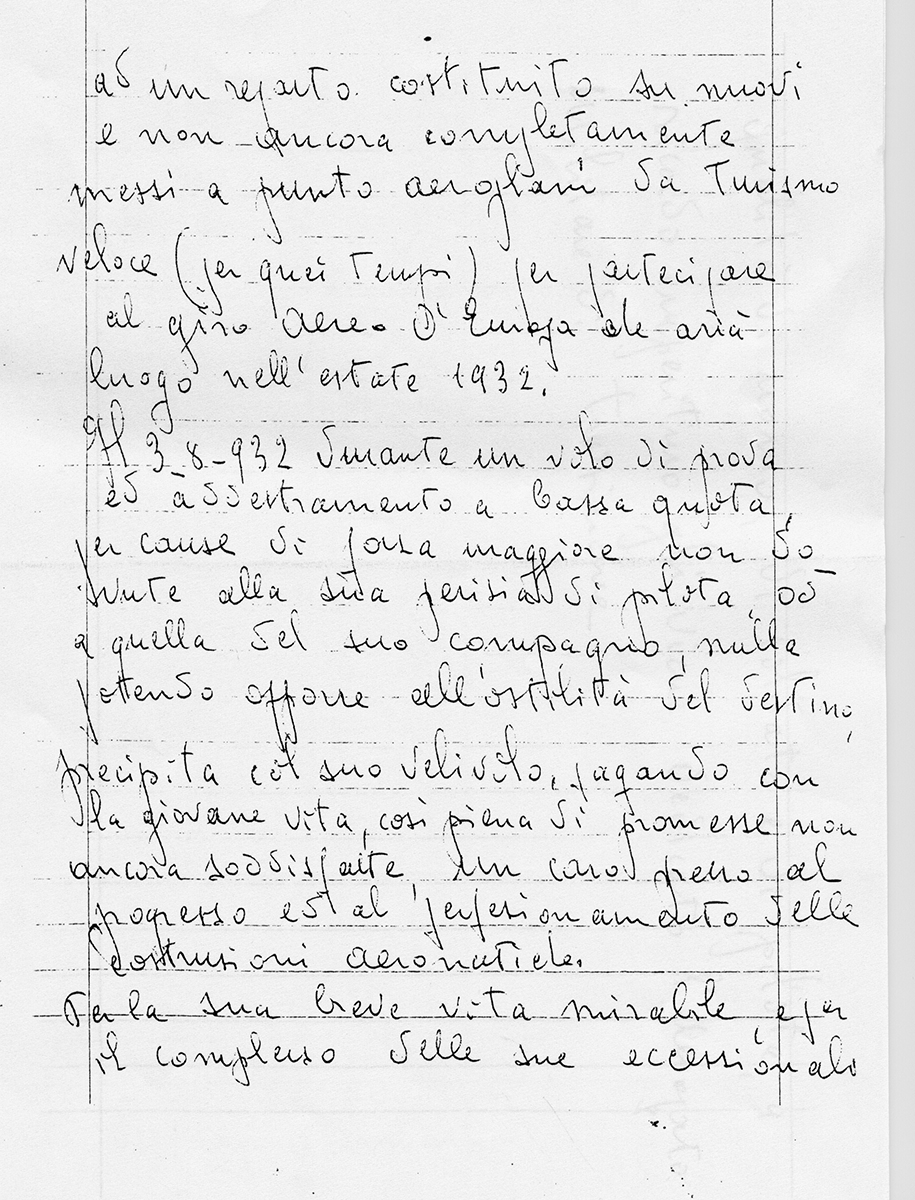 ad un reparto costituito su nuovi
e non ancora completamente
messi a punto aeroplani da Turismo
veloce (per quei tempi) per partecipare
al giro Aereo D'Europa che avrà
luogo nell'estate 1932.
Il 3-8-932 durante un volo di prova
ed addestramento a bassa quota,
per cause di forza maggiore non do
vute alla sua perizia di pilota, od
a quella del suo compagno, nulla
potendo opporre all'ostilità del destino,
precipita col suo velivolo, pagando con
la giovane vita, così piena di promesse non
ancora soddisfatte, un caro prezzo al
progresso ed al perfezionamento delle
costruzioni aeronatiche.
Per la sua breve vita mirabile, e per
il complesso delle sue eccessionali